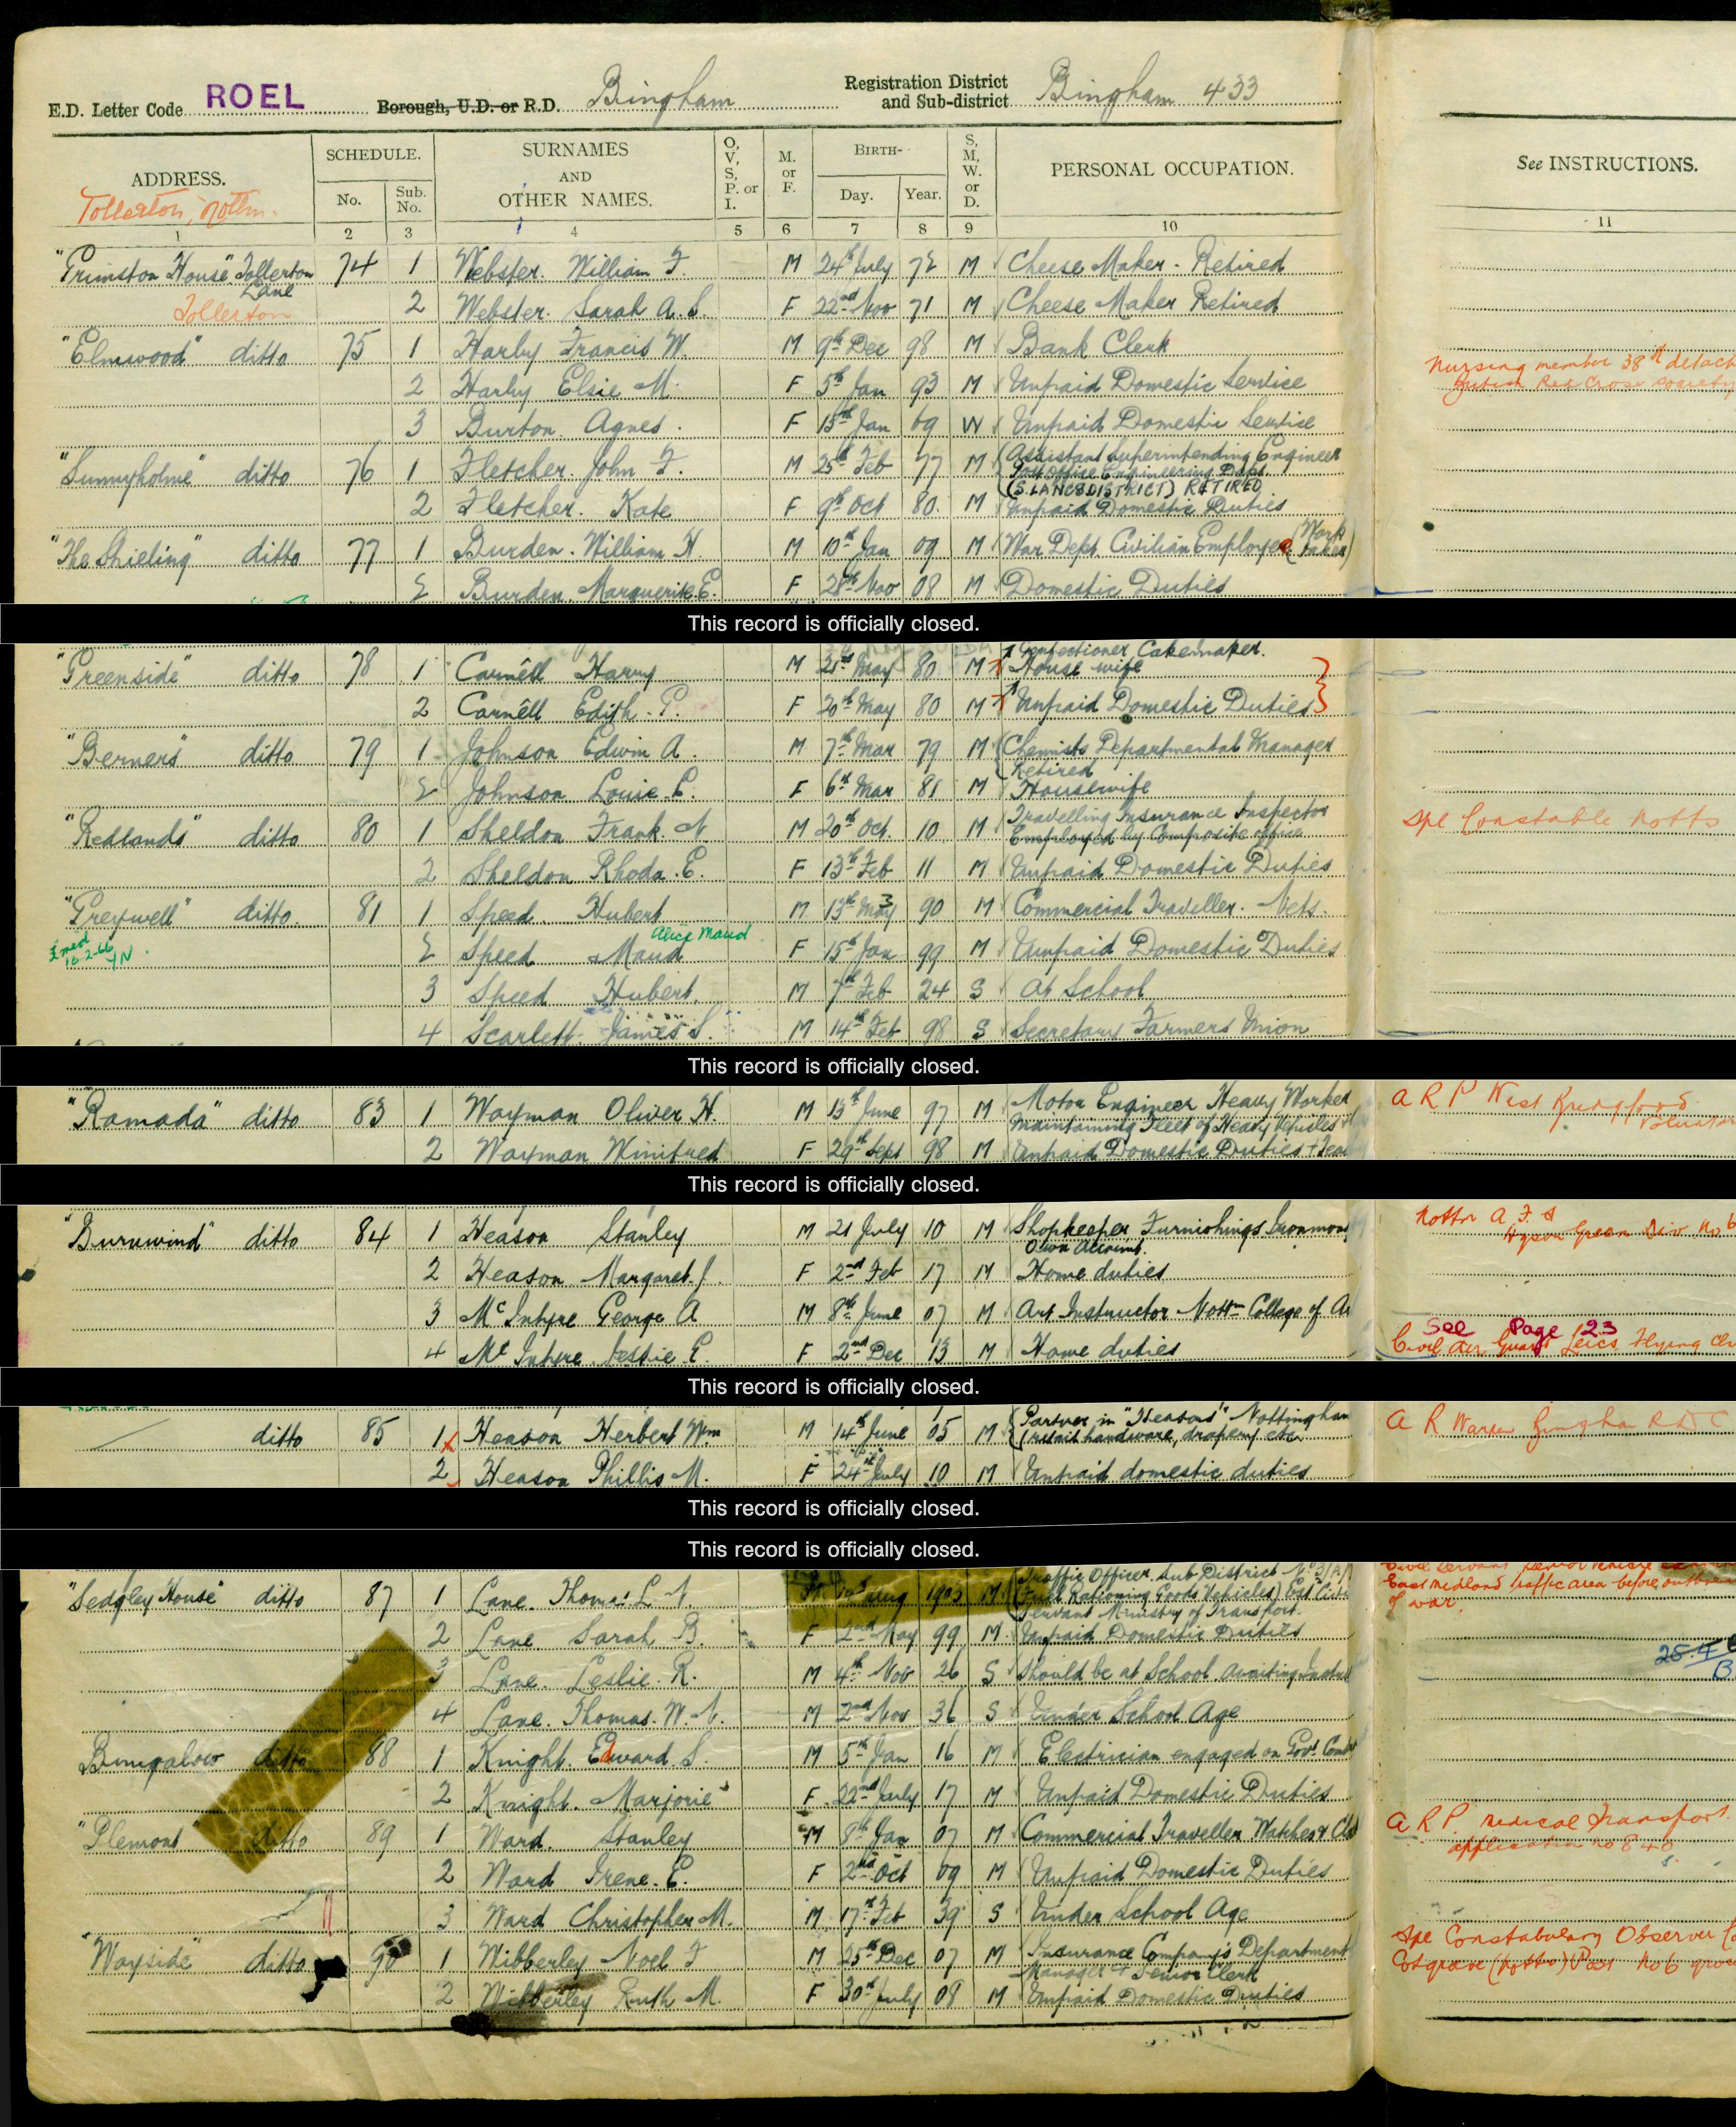 E.D. Letter Code ROEL Borough, U.D. or R.D. Bingham Registration District and Sub-district Bingham 433
ADDRESS. SCHEDULE. No. Sub. No. SURNAMES AND OTHER NAMES. O, V, S, P. or I. M. or F. BIRTH- Day. Year. S, M, W. or D. PERSONAL OCCUPATION. See INSTRUCTIONS.
Tollerton, Nottm.
1 2 3 4 5 6 7 8 9 10 11
"Grimston House" Tollerton 74 1 Webster. William F. M 24th July 72 M Cheese Maker - Retired
Lane
Tollerton 2 Webster. Sarah A. S. F 22nd Nov 71 M Cheese Maker Retired
"Elmswood" ditto 75 1 Harby Francis W. M 9th Dec 98 M Bank Clerk
Nursing member 38th detach
British Red Cross Society
2 Harby Elsie M. F 5th Jan 93 M Unpaid Domestic Service
3 Burton. Agnes. F 15th Jan 69 W Unpaid Domestic Service
"Sunnyholme" ditto 76 1 Fletcher. John F. M 25th Feb 77 M Assistant Superintending Engineer
Post Office Engineering Dept.
(S. LANCS DISTRICT) RETIRED
2 Fletcher. Kate F 9th Oct 80. M Unpaid Domestic Duties
"The Shieling" ditto 77 1 Burden. William H. M 10th Jan 09 M War Dept. Civilian Employee (Work Taker)
2 Burden. Marguerite E. F 28th Nov 08 M Domestic Duties
This record is officially closed.
Confectioner Cakemaker.
"Greenside" ditto 78 1 Carnell Harry M 21st May 80 M House wife
2 Carnell Edith. P. F 20th May 80 M Unpaid Domestic Duties
"Berners" ditto 79 1 Johnson Edwin A. M 7th Mar 79 M Chemists Departmental Manager
Retired
2 Johnson Louie. E. F 6th Mar 81 M Housewife
"Redlands" ditto 80 1 Sheldon Frank. N. M 20th Oct. 10 M Travelling Insurance Inspector
Employed by Composite office
Spe Constable Notts
2 Sheldon Rhoda. E. F 13th Feb 11 M Unpaid Domestic Duties
"Greywell" ditto. 81 1 Speed. Hubert M 13th May 3 90 M Commercial Traveller. Nets.
Alice Maud
16-2-66 2 Speed Maud F 15th Jan 99 M Unpaid Domestic Duties
3 Speed Hubert. M 7th Feb 24 S At School
4 Scarlett James S. M 14th Feb 98 S Secretary Farmers Union
This record is officially closed.
"Ramada" ditto 83 1 Wayman Oliver H. M 13th June 97 M Motor Engineer Heavy Worker
Maintaining Fleet of Heavy Vehicles
A R P West
2 Wayman Winifred F 29th Sept 98 M Unpaid Domestic Duties +
This record is officially closed.
"Burnwind" ditto 84 1 Heason Stanley M 21 July 10 M Shopkeeper Furnishings Ironmon
Own Account.
Nottm A. F. S
Hyson Green Div No 6
2 Heason Margaret. J. F 2nd Feb 17 M Home duties
3 McIntyre George A M 8th June 07 M Art Instructor Nottm College of Ar
See Page 23
4 McIntyre Jessie E. F 2nd Dec 13 M Home duties Civil Air Guard Leics. Flying Cl
This record is officially closed.
ditto 85 1 Heason Herbert Wm M 14th June 05 M Partner in "Heasons" Nottingham
(retail hardware, drapery etc.
A R Warden Bingham R D C
2 Heason Phillis M. F 24th July 10 M Unpaid domestic duties
This record is officially closed.
This record is officially closed.
Traffic Officer, Sub District No 3/A/
"Sedgley House" ditto 87 1 Lane. Thomas L. N. M Aug 1903 M (Fuel Rationing Goods Vehicles) Est Civil
Servant Ministry of Transport.
East Midland Traffic area before outbreak
of war.
2 Lane Sarah B. F 2nd May 99 M Unpaid Domestic Duties
3 Lane. Leslie. R. M 4th Nov 26 S Should be at School. awaiting Instru
4 Lane. Thomas. W. N. M 2nd Nov 36 S Under School Age
Bungalow ditto 88 1 Knight. Edward S. M 5th Jan 16 M Electrician engaged on Govt. Cont
2 Knight. Marjorie F. 22nd July 17 M Unpaid Domestic Duties
"Plemont ditto 89 1 Ward. Stanley M 8th Jan 07 M Commercial Traveller Watches & Clo
A R P. Medical Transport.
application no
2 Ward Irene. E. F 2nd Oct 09 M Unpaid Domestic Duties
3 Ward Christopher M. M 17th Feb 39 S Under School Age
"Wayside" ditto 90 1 Wibberley Noel F M 25th Dec 07 M Insurance Company's Department
Manager & Senior Clerk
Spe Constabulary Observer
Cotgrave (Notts) Post No 6
2 Wibberley Ruth M. F 30th July 08 M Unpaid Domestic Duties